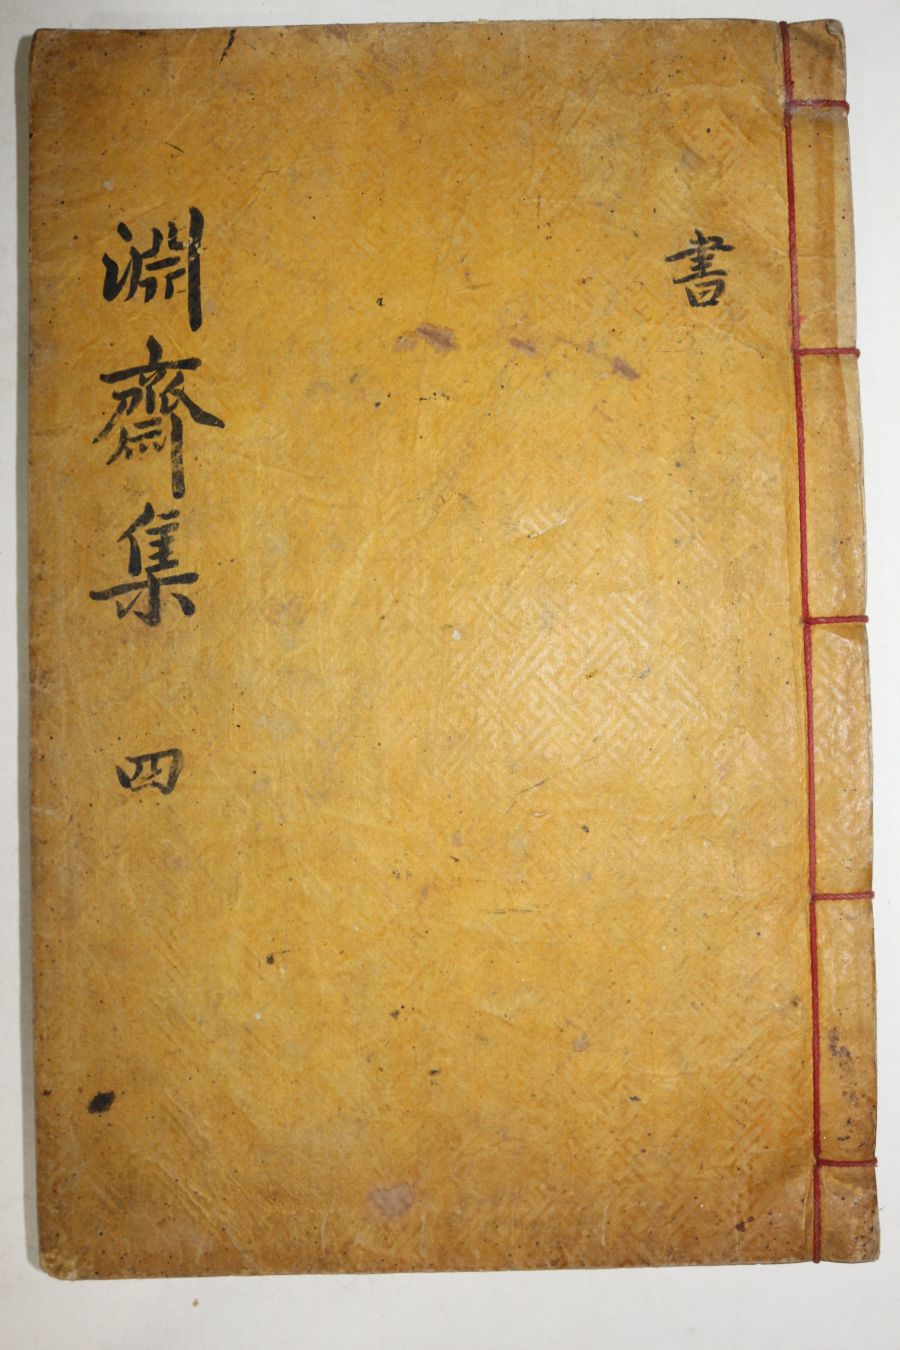 書
淵齋集 四